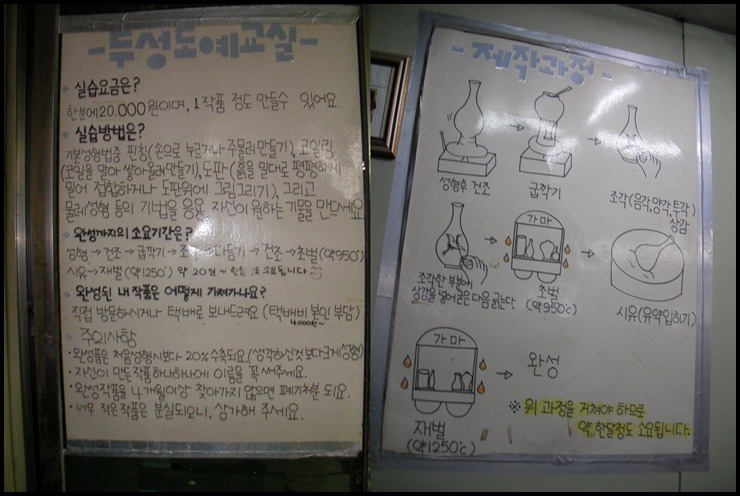 -두성도예교실-
• 실습요금은?
한분에 20.000원이며, 1작품 정도 만들수 있어요.
• 실습방법은?
기본성형법중 핀칭(손으로 누르거나 주물러 만들기), 코일링
(코일을 말아 쌓아올려만들기), 도판(흙을 밀대로 평평하게
밀어 접합하거나 도판위에 그림그리기), 그리고
물레성형 등의 기법을 응용 자신이 원하는 기물을 만드세요
• 완성까지의 소요기간은?
성형→건조→굽깎기→조각→다듬기→건조→초벌(약950°)
시유→재벌(약1250°) 약 20일~ 소요됩니다
• 완성된 내 작품은 어떻게 가져가나요?
직접 방문하시거나 택배로 보내드려요 (택배비 본인 부담)
4,000원~
• 주의사항
• 완성품은 처음성형시보다 20% 수축되요.(생각하신것보다크게성형)
• 자신이 만든작품하나하나에 이름을 꼭 써주세요.
• 완성작품을 4개월이상 찾아가지 않으면 폐기처분 되요.
• 너무 작은작품은 분실되오니, 삼가해 주세요.
-제작과정-
성형후 건조
굽깎기
조각(음각,양각,투각)
상감
조각한 부분에
상감을 넣어굳은다음 긁는다.
가마
초벌
(약950℃)
시유(유약입히기)
가마
재벌
(약1250℃)
완성
※ 위 과정을 거쳐야 하므로
약 한달정도 소요됩니다.